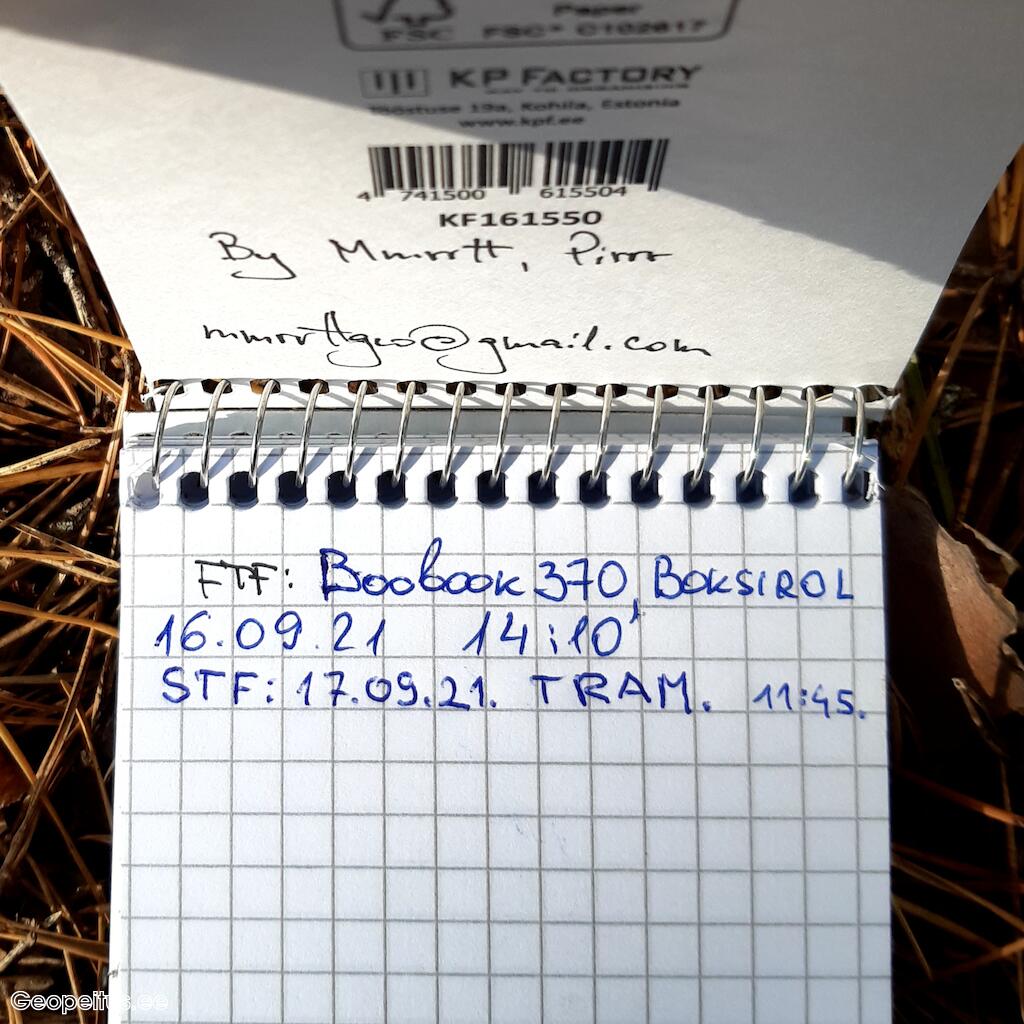 Paper
FSC FSC® C102617
KP FACTORY
19a, Kohila, Estonia
www.kpf.ee
4 741500 615504
KF161550
By Mmrrtt, Pirrr
mmrrttgeo@gmail.com
FTF: Boobook 370, BOKSIROL
16.09.21 14:10'
STF: 17.09.21. TRAM. 11:45.
Geopeitus.ee